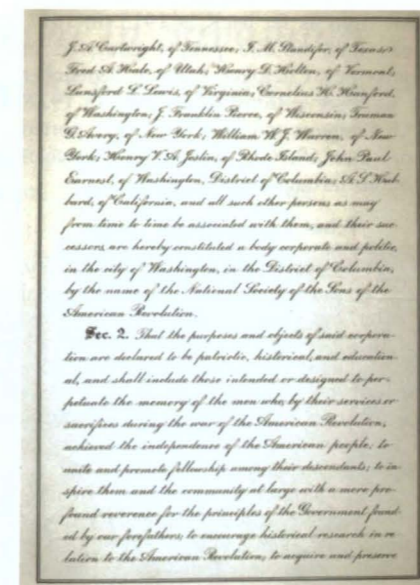 J. A. Cartwright, of Tennessee; I. M. Standifer, of Texas;
Fred A. Hale, of Utah; Henry D. Holton, of Vermont;
Lunsford L. Lewis, of Virginia; Cornelius H. Hanford,
of Washington; J. Franklin Pierce, of Wisconsin; Truman
G. Avery, of New York; William W. J. Warren, of New
York; Henry V. A. Joslin, of Rhode Island; John Paul
Earnest, of Washington, District of Columbia; A. S. Hub-
bard, of California, and all such other persons as may
from time to time be associated with them, and their suc-
cessors, are hereby constituted a body corporate and politic,
in the city of Washington, in the District of Columbia,
by the name of the National Society of the Sons of the
American Revolution.
Sec. 2. That the purposes and objects of said corpora-
tion are declared to be patriotic, historical, and education-
al, and shall include those intended or designed to per-
petuate the memory of the men who, by their services or
sacrifices during the war of the American Revolution,
achieved the independence of the American people; to
unite and promote fellowship among their descendants; to in-
spire them and the community at large with a more pro-
found reverence for the principles of the Government found-
ed by our forefathers; to encourage historical research in re-
lation to the American Revolution; to acquire and preserve